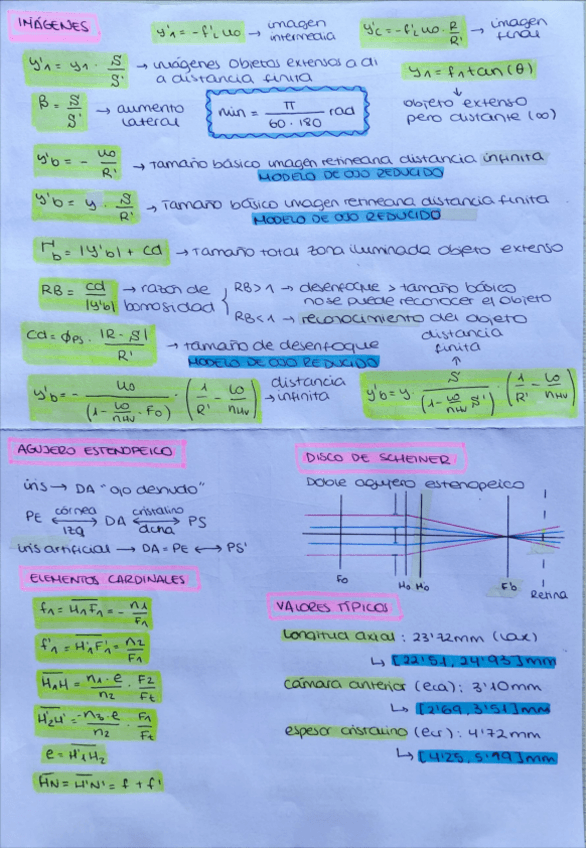 IMÁGENES
y'₁ = -f'L u₀ → imagen intermedia
y'c = -f'L u₀ · R/R' → imagen final
y'₁ = y₁ · S/S' → imágenes objetos extensos a di a distancia finita
y₁ = f₁ tan(θ)
↓
objeto extenso pero distante (∞)
B = S/S' → aumento lateral
min = π/(60·180) rad
y'b = - u₀/R' → Tamaño básico imagen retineana distancia infinita
MODELO DE OJO REDUCIDO
y'b = y · S/R' → Tamaño básico imagen retineana distancia finita
MODELO DE OJO REDUCIDO
Hb = |y'b| + cd → Tamaño total zona iluminada objeto extenso
RB = cd/|y'b| → razón de borrosidad
RB>1 → desenfoque > tamaño básico
no se puede reconocer el objeto
RB<1 → reconocimiento del objeto
cd = ϕPS · |R-S|/R' → tamaño de desenfoque
MODELO DE OJO REDUCIDO
distancia finita
↑
y'b = - u₀/(1 - ω/nHV · F₀) · (1/R' - ω/nHV) → distancia infinita
y'b = y · S/(1 - ω/nHV S') · (1/R' - ω/nHV)
AGUJERO ESTENOPEICO
iris → DA "ojo desnudo"
PE ←córnea izq→ DA ←cristalino dcha→ PS
iris artificial → DA = PE ↔ PS'
DISCO DE SCHEINER
Doble agujero estenopeico
F₀ H₀ H₀ F'b Retina
ELEMENTOS CARDINALES
f₁ = H₁F₁ = - n₁/F₁
f'₁ = H'₁F'₁ = n₂/F₁
H₁H = n₁·e/n₂ · F₂/Ft
H'₂H' = -n₃·e/n₂ · F₁/Ft
e = H'₁H₂
HN = H'N' = f + f'
VALORES TÍPICOS
Longitud axial : 23'72mm (Lax)
↳ [22'51, 24'93] mm
cámara anterior (eca): 3'10mm
↳ [2'69, 3'51] mm
espesor cristalino (ecr) : 4'72mm
↳ [4'25, 5'19] mm